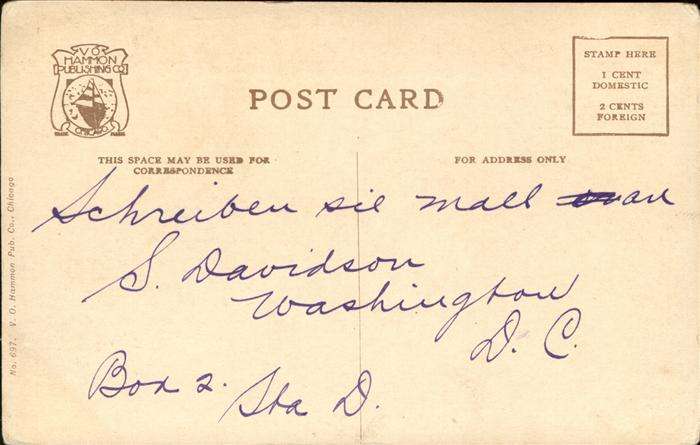 V O
HAMMON
PUBLISHING CO
CHICAGO
TRADE MARK
POST CARD
STAMP HERE
1 CENT
DOMESTIC
2 CENTS
FOREIGN
THIS SPACE MAY BE USED FOR
CORRESPONDENCE
FOR ADDRESS ONLY
Schreiben sie mall an
S. Davidson
Washington
D. C.
Box 2. Sta D.
No. 697. V. O. Hammon Pub. Co., Chicago